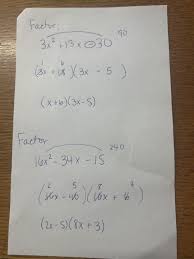 Factor:
3x² + 13x - 30 90
(3x + 18)(3x - 5)
(x+6)(3x-5)
Factor
16x² - 34x - 15 240
(16x - 40)(16x + 6)
(2x-5)(8x+3)